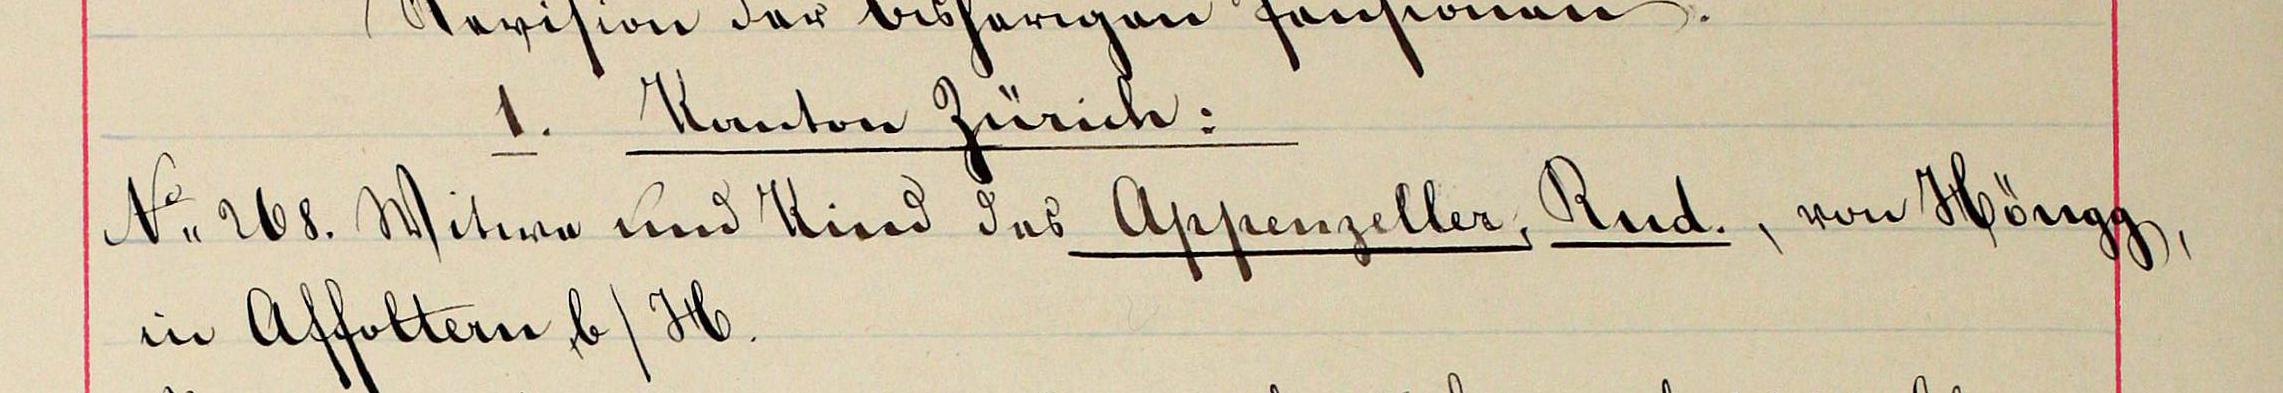 Revision der bisherigen Pensionen.
1. Kanton Zürich:
No 268. Witwe und Kind des Appenzeller, Rud., von Höngg,
in Affoltern b/H.